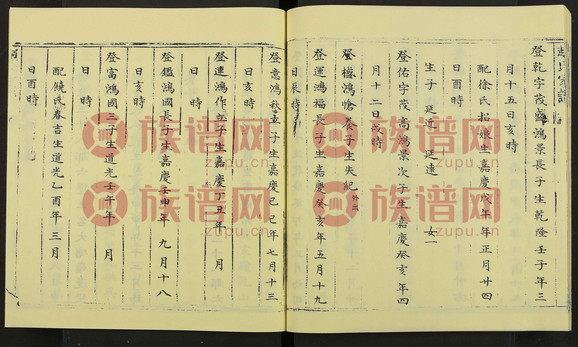 登乾字茂 鴻景長子生乾隆壬子年三
月十五日亥時
配徐氏招娘生嘉慶戊年年正月廿四
日酉時
生子 延近 延達 女一
登佑字茂高鴻景次子生嘉慶癸亥年四
月十二日戌時
登 鴻 養子生失紀外出
登運鴻福長子生嘉慶癸亥年五月十九
日辰時
登意鴻秋 子生嘉慶己巳年七月十三
日亥時
登連鴻作 子生嘉慶丁丑年 月
日 時
登鑑鴻國長子生嘉慶壬申年九月十八
日亥時
登富鴻國三子生道光壬午年 月
日 時
配饒氏春吉生道光乙酉年三月
日酉時
族谱网
zupu.cn
族谱网
zupu.cn
族谱网
zupu.cn
族谱网
zupu.cn